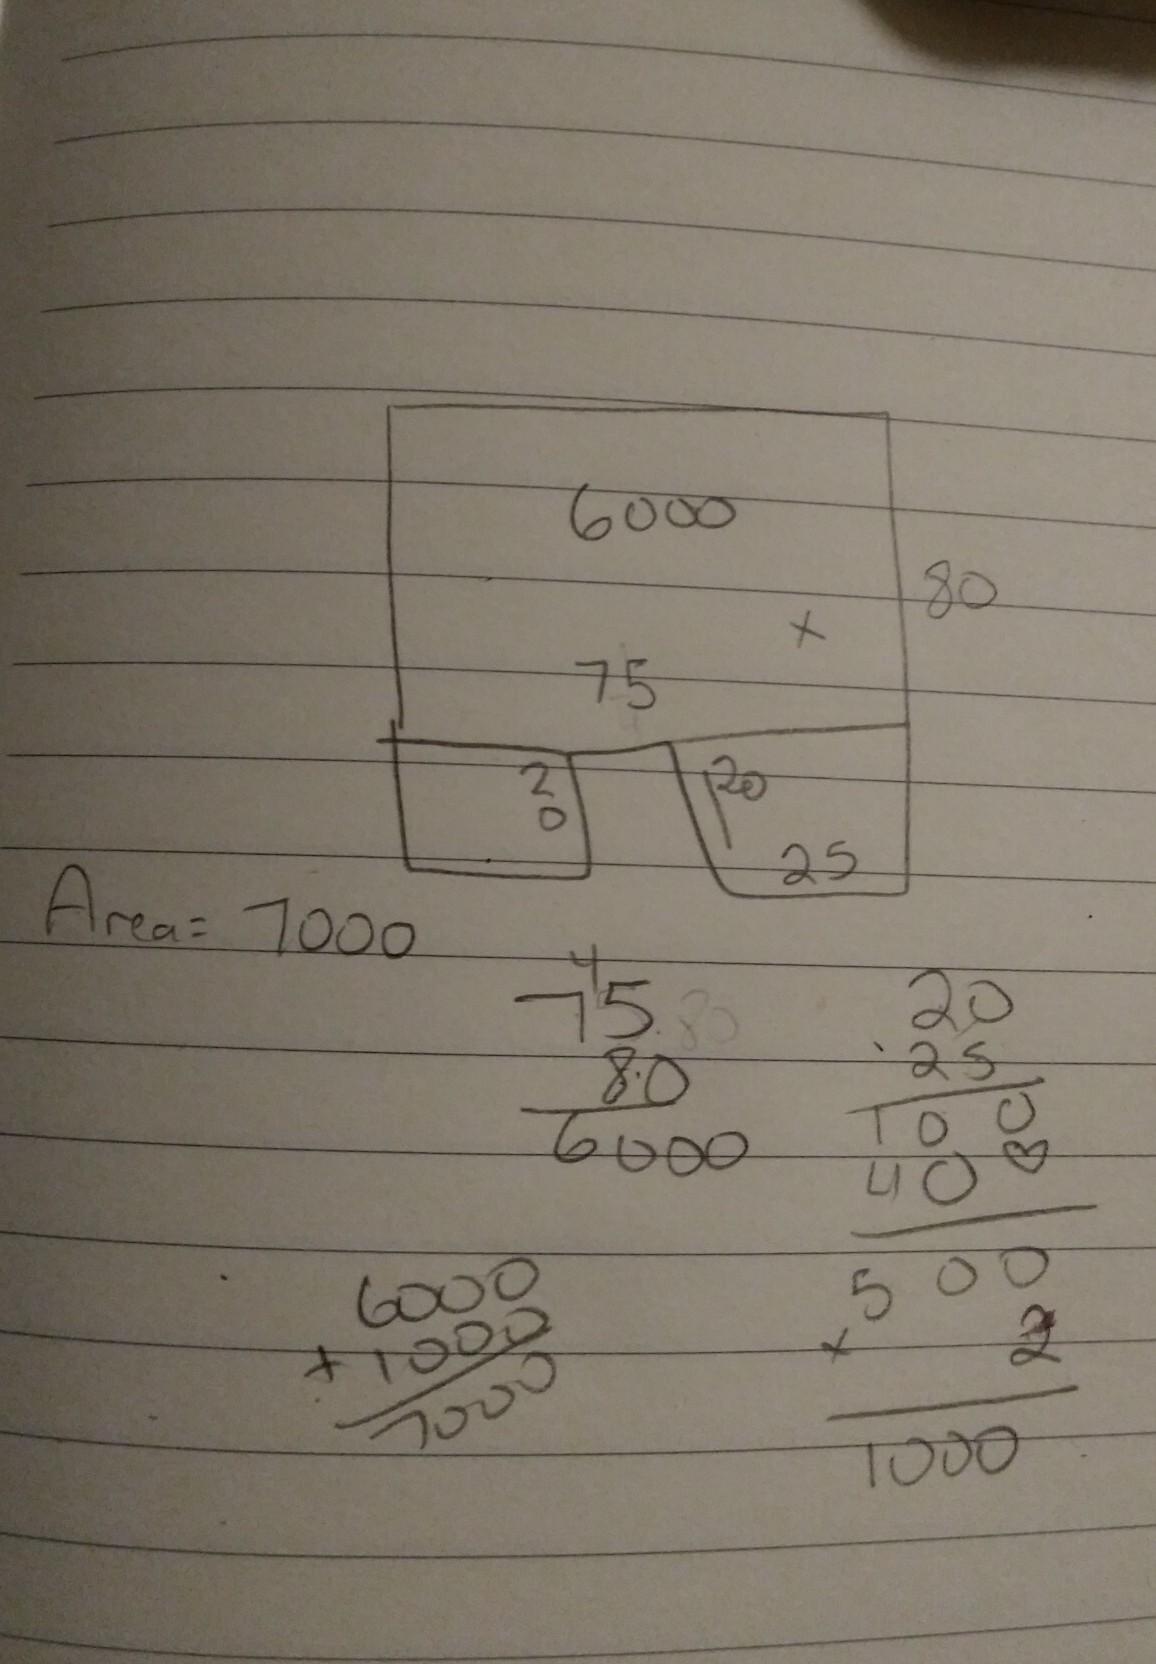 6000
80
x
75
2
0
20
25
Area= 7000
4
75 80
80
6000
20
25
100
400
500
x 2
1000
6000
+ 1000
7000